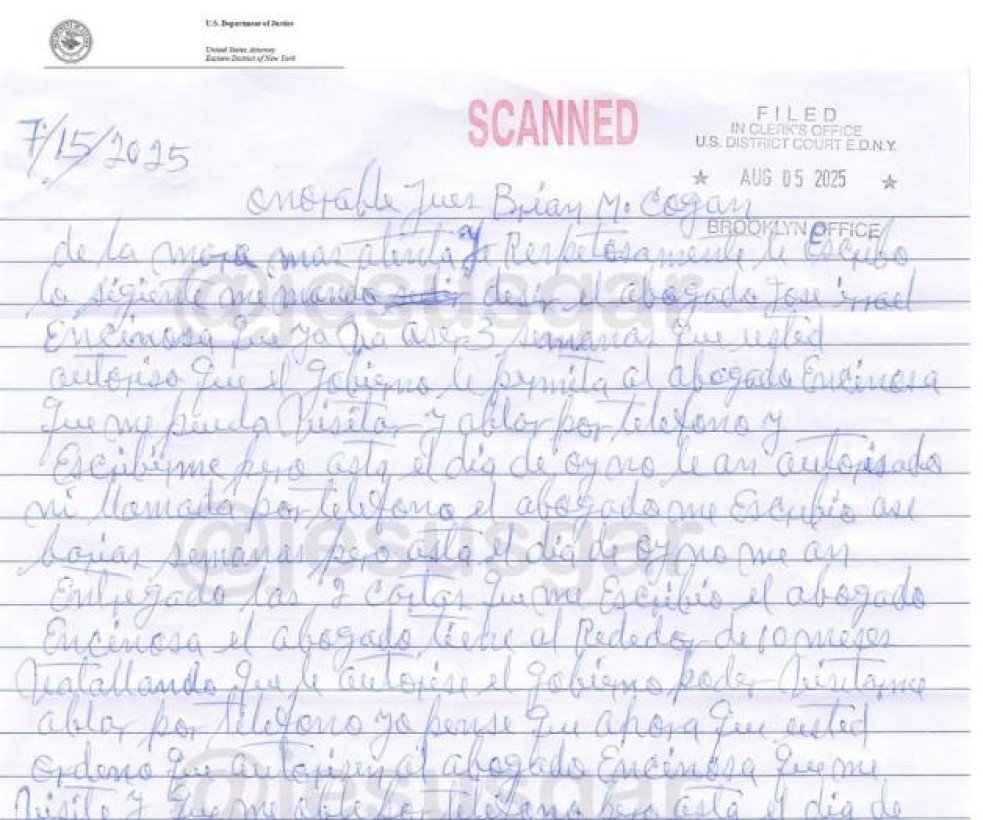 U.S. Department of Justice
United States Attorney
Eastern District of New York
SCANNED
FILED
IN CLERK'S OFFICE
U.S. DISTRICT COURT E.D.N.Y.
★ AUG 05 2025 ★
BROOKLYN OFFICE
7/15/2025
onorable Jues Brian M. Cogan
de la mera mas atenta y Respetosamente le Escribo
lo sigiente me mando desir el abogado Jose
Encinosa que ya ase 3 semanas que usted
autoriso que el gobierno le permita al abogado Encinosa
que me pueda Visitar y ablar por telefono y
Escribirme pero asta el dia de oy no le an autorisado
ni llamada por telefono el abogado me Escribio ase
barias semanas pero asta el dia de oy no me an
Entregado las 2 cartas que me Escribio el abogado
Encinosa el abogado tiene al Rededor de 10 meses
Vatallando que le autorise el gobierno poder Visitarme
ablar por telefono yo pense que ahora que usted
ordeno que autorisen al abogado Encinosa que me
Visite y que me able por telefono pero asta el dia de
@jesusgar
@jesusgar
@jesusgar